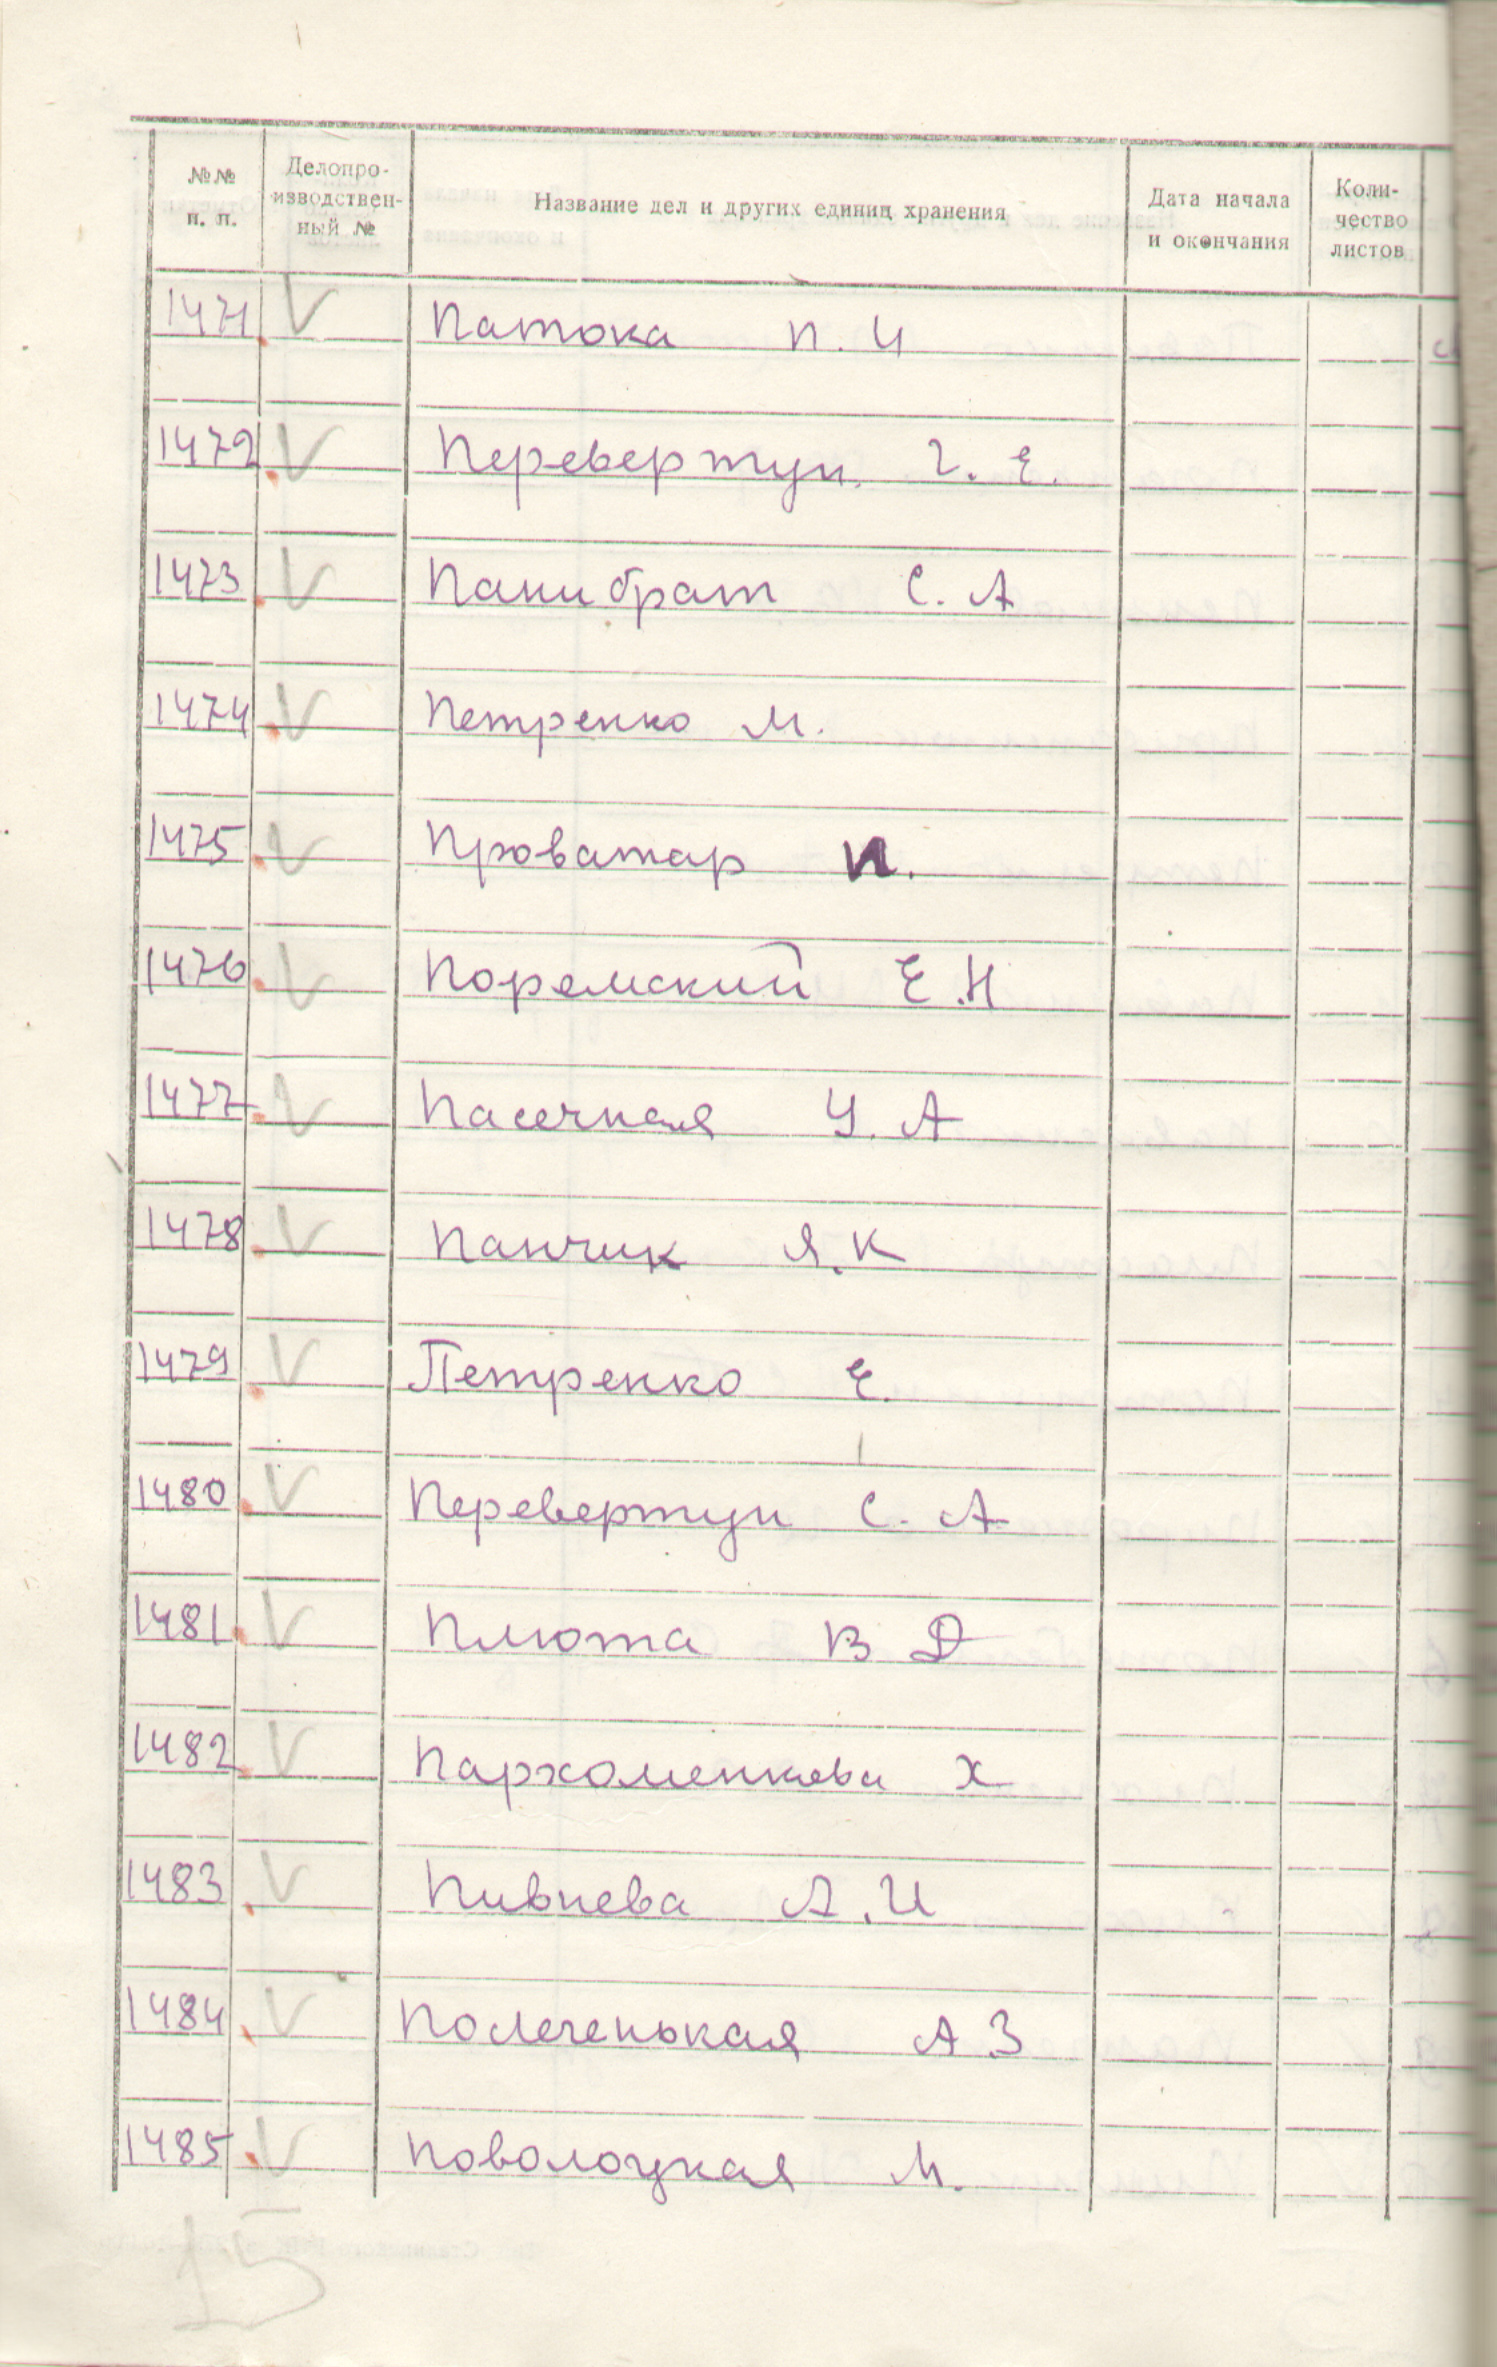 №№ п. п. Делопроизводственный № Название дел и других единиц хранения Дата начала и окончания Количество листов
1471 Патока П. И
1472 Перевертун Г. Е.
1473 Панибрат С. А
1474 Петренко М.
1475 Проватар И.
1476 Поремский Е. Н
1477 Пасечная У. А
1478 Панчик Я. К
1479 Петренко Е.
1480 Перевертун С. А
1481 Плюта В Д
1482 Пархоменкова Х
1483 Пивнева А. И
1484 Полеченькая А З
1485 Поволоцкая М.
15